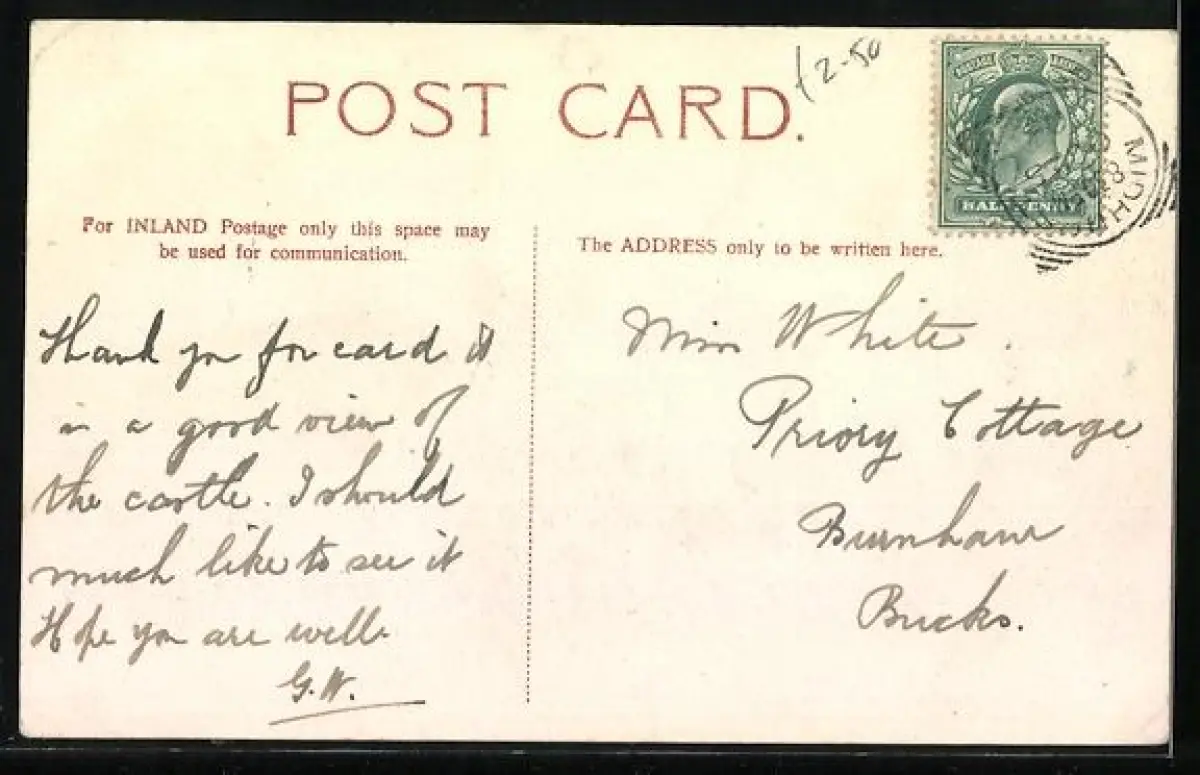 POST CARD.
£2-50
For INLAND Postage only this space may
be used for communication.
The ADDRESS only to be written here.
POSTAGE REVENUE
HALFPENNY
Thank you for card it
is a good view of
the castle. I should
much like to see it
Hope you are well.
G.W.
Miss White.
Priory Cottage
Burnham
Bucks.